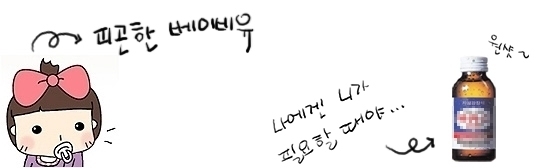 피곤한 베이베유
원샷~
나에겐 니가
필요할 때야...